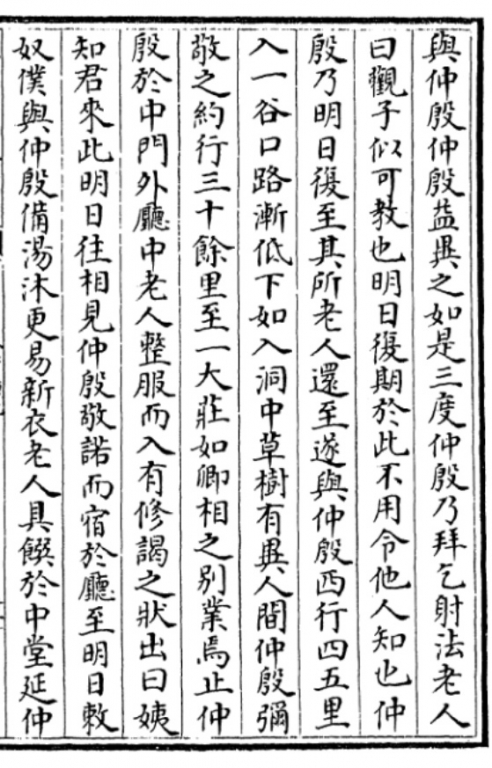 與仲殷仲殷益異之如是三度仲殷乃拜乞射法老人
曰觀子似可教也明日復期於此不用令他人知也仲
殷乃明日復至其所老人還至遂與仲殷西行四五里
入一谷口路漸低下如入洞中草樹有異人間仲殷彌
敬之約行三十餘里至一大莊如卿相之別業焉止仲
殷於中門外廳中老人整服而入有修謁之狀出曰姨
知君來此明日往相見仲殷敬諾而宿於廳至明日敕
奴僕與仲殷備湯沐更易新衣老人具饌於中堂延仲